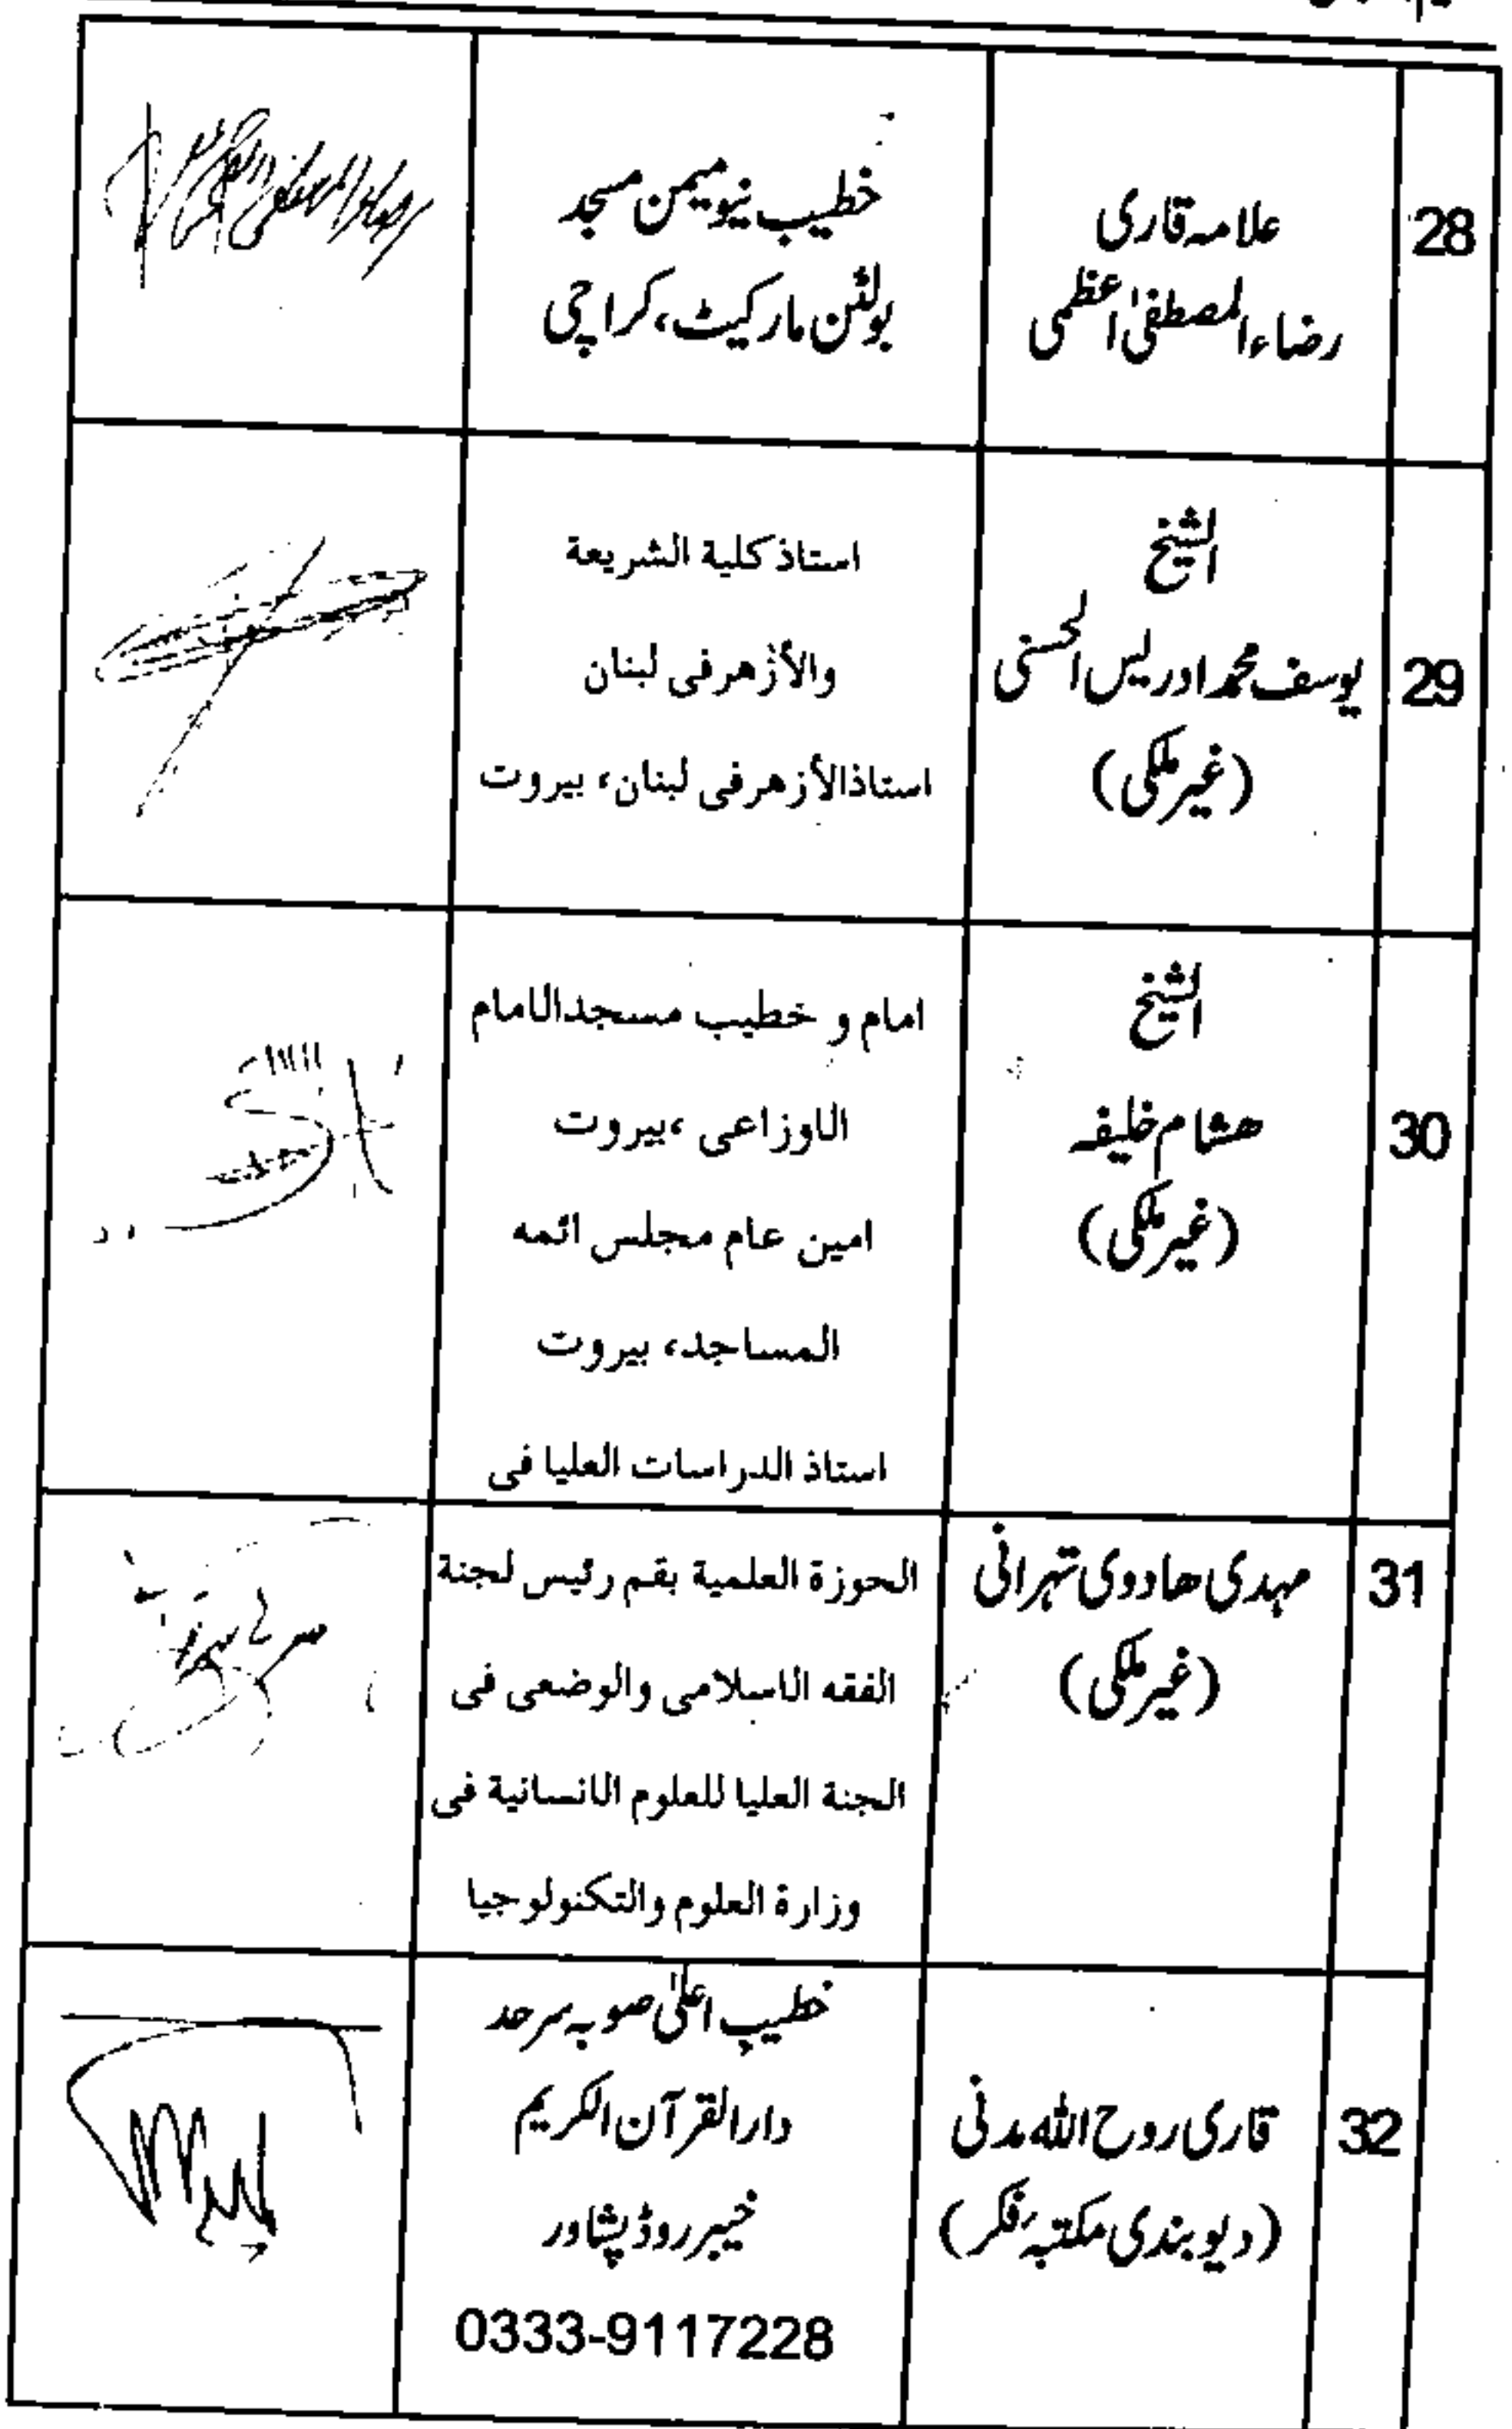 28
علامہ قاری
رضاء المصطفیٰ اعظمی
خطیب نیو میمن مسجد
بولٹن مارکیٹ، کراچی
29
الشیخ
یوسف محمد ادریس الحسنی
(غیر ملکی)
استاذ کلیة الشریعة
والأزهر فی لبنان
استاذ الأزهر فی لبنان، بیروت
30
الشیخ
هشام خلیفہ
(غیر ملکی)
امام و خطیب مسجد الامام
الاوزاعی، بیروت
امین عام مجلس ائمه
المساجد، بیروت
استاذ الدراسات العلیا فی
31
مہدی هادوی تہرانی
(غیر ملکی)
الحوزة العلمیة بقم رئیس لجنة
الفقه الاسلامی والوضعی فی
الجنة العلیا للعلوم الانسانیة فی
وزارة العلوم والتکنولوجیا
32
قاری روح اللہ مدنی
(دیوبندی مکتبہ فکر)
خطیب اعلیٰ صوبہ سرحد
دارالقرآن الکریم
خیبر روڈ پشاور
0333-9117228